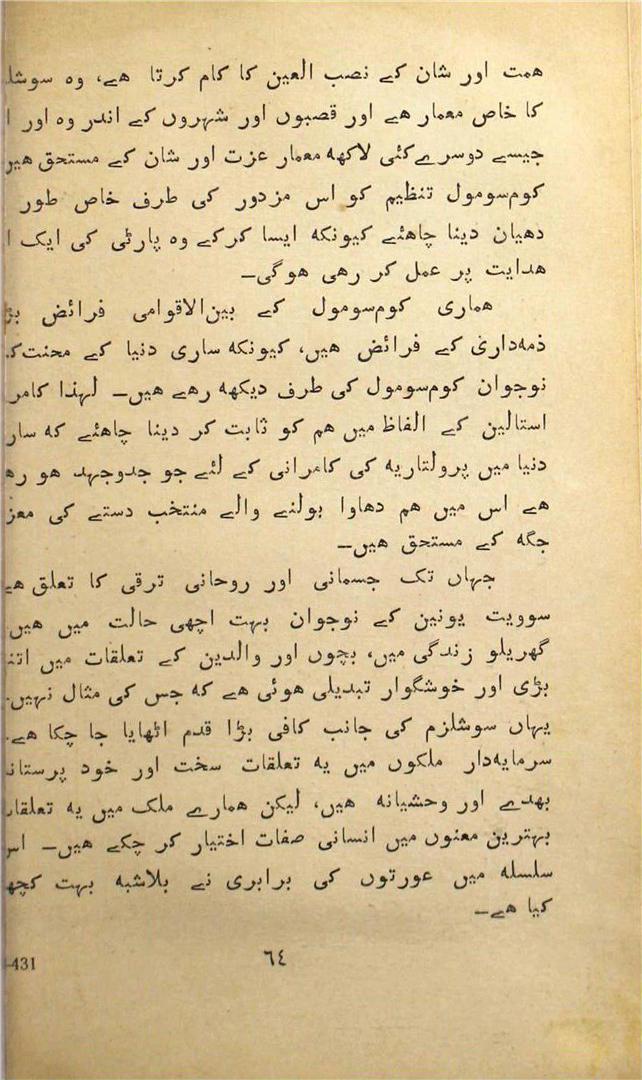 همت اور شان کے نصب العین کا کام کرتا ھے، وہ سوشلـ
کا خاص معمار ھے اور قصبوں اور شہروں کے اندر وہ اور ا
جیسے دوسرے کئی لاکھہ معمار عزت اور شان کے مستحق ھیں
کوم‌سومول تنظیم کو اس مزدور کی طرف خاص طور
دھیان دینا چاھئے کیونکہ ایسا کرکے وہ پارٹی کی ایک ا
ھدایت پر عمل کر رھی ھوگی۔
ھماری کوم‌سومول کے بین‌الاقوامی فرائض بڑ
ذمہ‌داری کے فرائض ھیں، کیونکہ ساری دنیا کے محنت‌کـ
نوجوان کوم‌سومول کی طرف دیکھہ رھے ھیں۔ لہذا کامر
استالین کے الفاظ میں ھم کو ثابت کر دینا چاھئے کہ سار
دنیا میں پرولتاریہ کی کامرانی کے لئے جو جدوجہد ھو رھ
ھے اس میں ھم دھاوا بولنے والے منتخب دستے کی معز
جگہ کے مستحق ھیں۔
جہاں تک جسمانی اور روحانی ترقی کا تعلق ھے
سوویت یونین کے نوجوان بہت اچھی حالت میں ھیں۔
گھریلو زندگی میں، بچوں اور والدین کے تعلقات میں اتنـ
بڑی اور خوشگوار تبدیلی ھوئی ھے کہ جس کی مثال نہیں۔
یہاں سوشلزم کی جانب کافی بڑا قدم اٹھایا جا چکا ھے۔
سرمایہ‌دار ملکوں میں یہ تعلقات سخت اور خود پرستانـ
بھدے اور وحشیانہ ھیں، لیکن ھمارے ملک میں یہ تعلقات
بہترین معنوں میں انسانی صفات اختیار کر چکے ھیں۔ اس
سلسلہ میں عورتوں کی برابری نے بلاشبہ بہت کچھ
کیا ھے۔
٦٤
-431